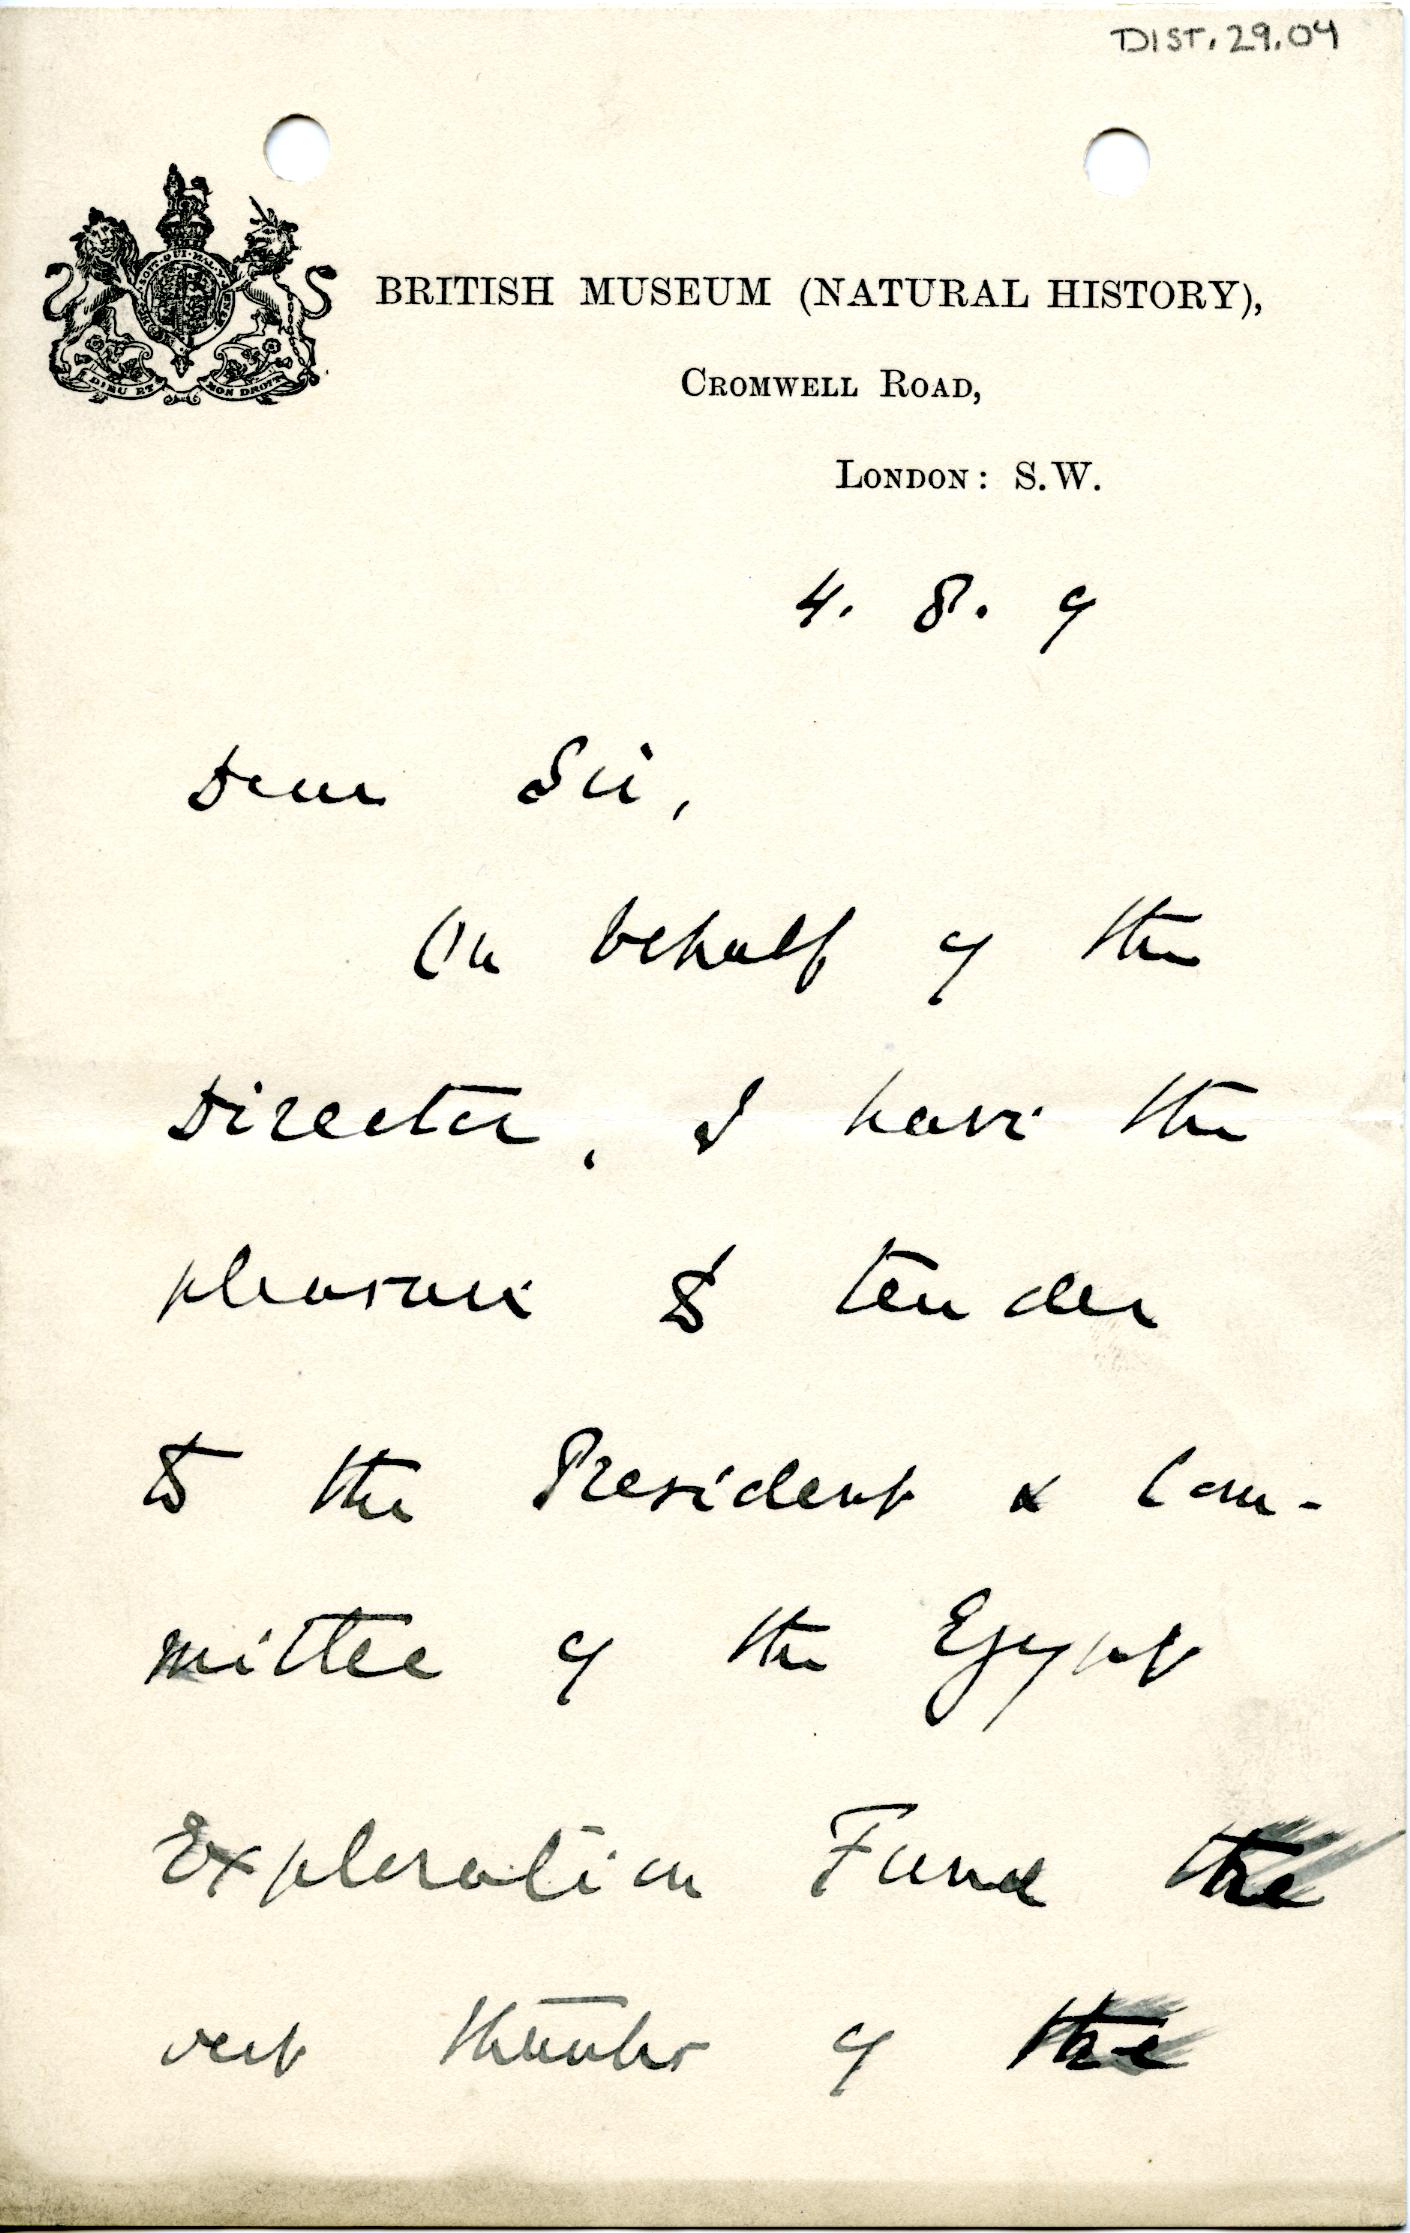 DIST. 29.04
BRITISH MUSEUM (NATURAL HISTORY),
CROMWELL ROAD,
LONDON: S.W.
DIEU ET MON DROIT
4. 8. 9
Dear Sir,
On behalf of the
Director, I have the
pleasure to tender
to the President & Com-
mittee of the Egypt
Exploration Fund the
thanks of the